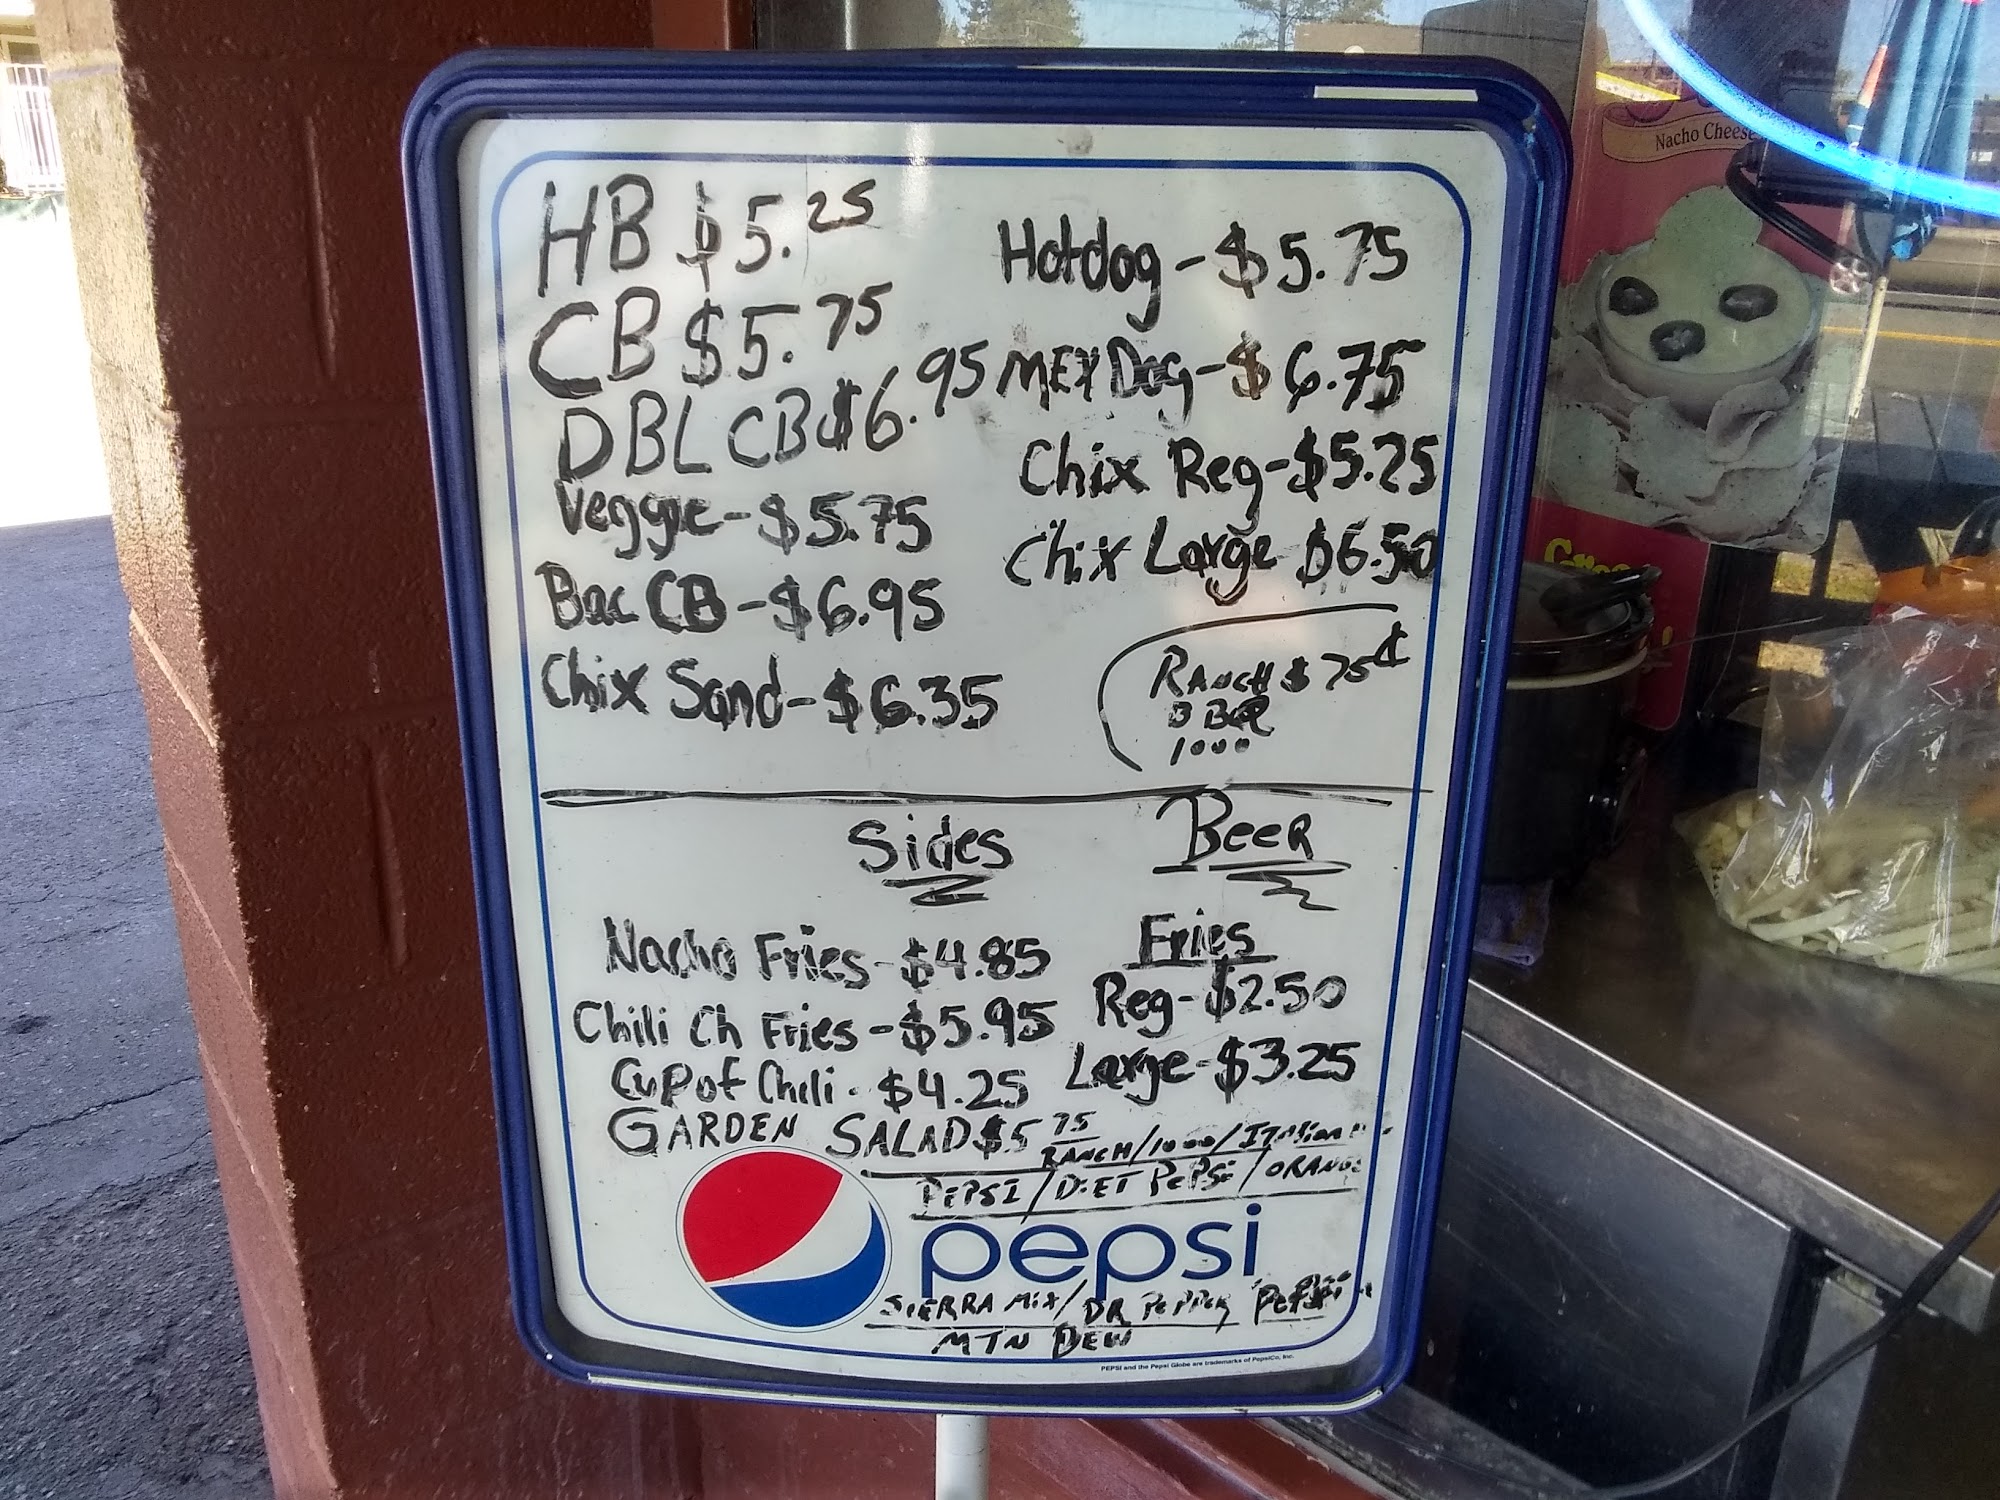 HB $5.25
CB $5.75
DBL CB $6.95
Veggie - $5.75
Bac CB - $6.95
Chix Sand - $6.35
Hotdog - $5.75
MEX Dog - $6.75
Chix Reg - $5.25
Chix Large $6.50
RANCH $ 75¢
BBQ
1000
Sides
Nacho Fries - $4.85
Chili Ch Fries - $5.95
Cup of Chili - $4.25
GARDEN SALAD $5 75
RANCH/1000/ITALIAN
BEER
Fries
Reg - $2.50
Large - $3.25
PEPSI/DIET PEPSI/ORANGE
pepsi
SIERRA MIX/DR PEPPER
MTN DEW
PEPSI and the Pepsi Globe are trademarks of PepsiCo, Inc.
Nacho Cheese